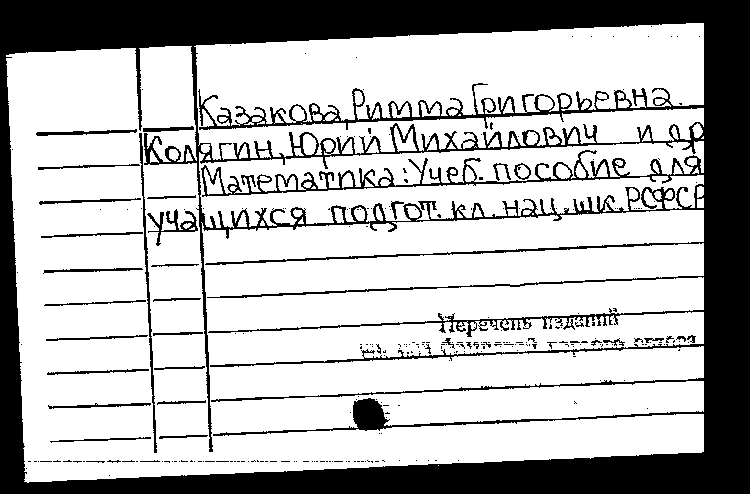 Казакова, Римма Григорьевна.
Колягин, Юрий Михайлович и др
Математика: Учеб. пособие для
учащихся подгот. кл. нац. шк. РСФСР
Перечень изданий
под фамилией первого автора